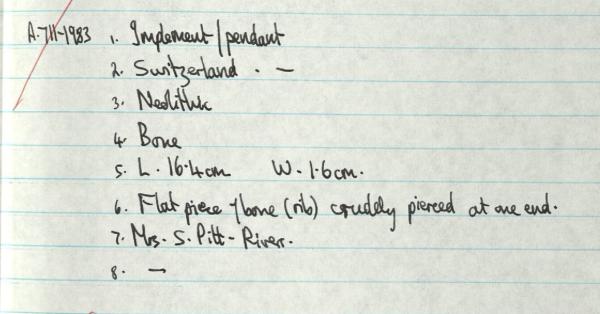 A.711-1983 1. Implement/pendant
2. Switzerland . —
3. Neolithic
4. Bone
5. L. 16.4cm W. 1.6cm.
6. Flat piece of bone (rib) crudely pierced at one end.
7. Mrs. S. Pitt-River.
8. —